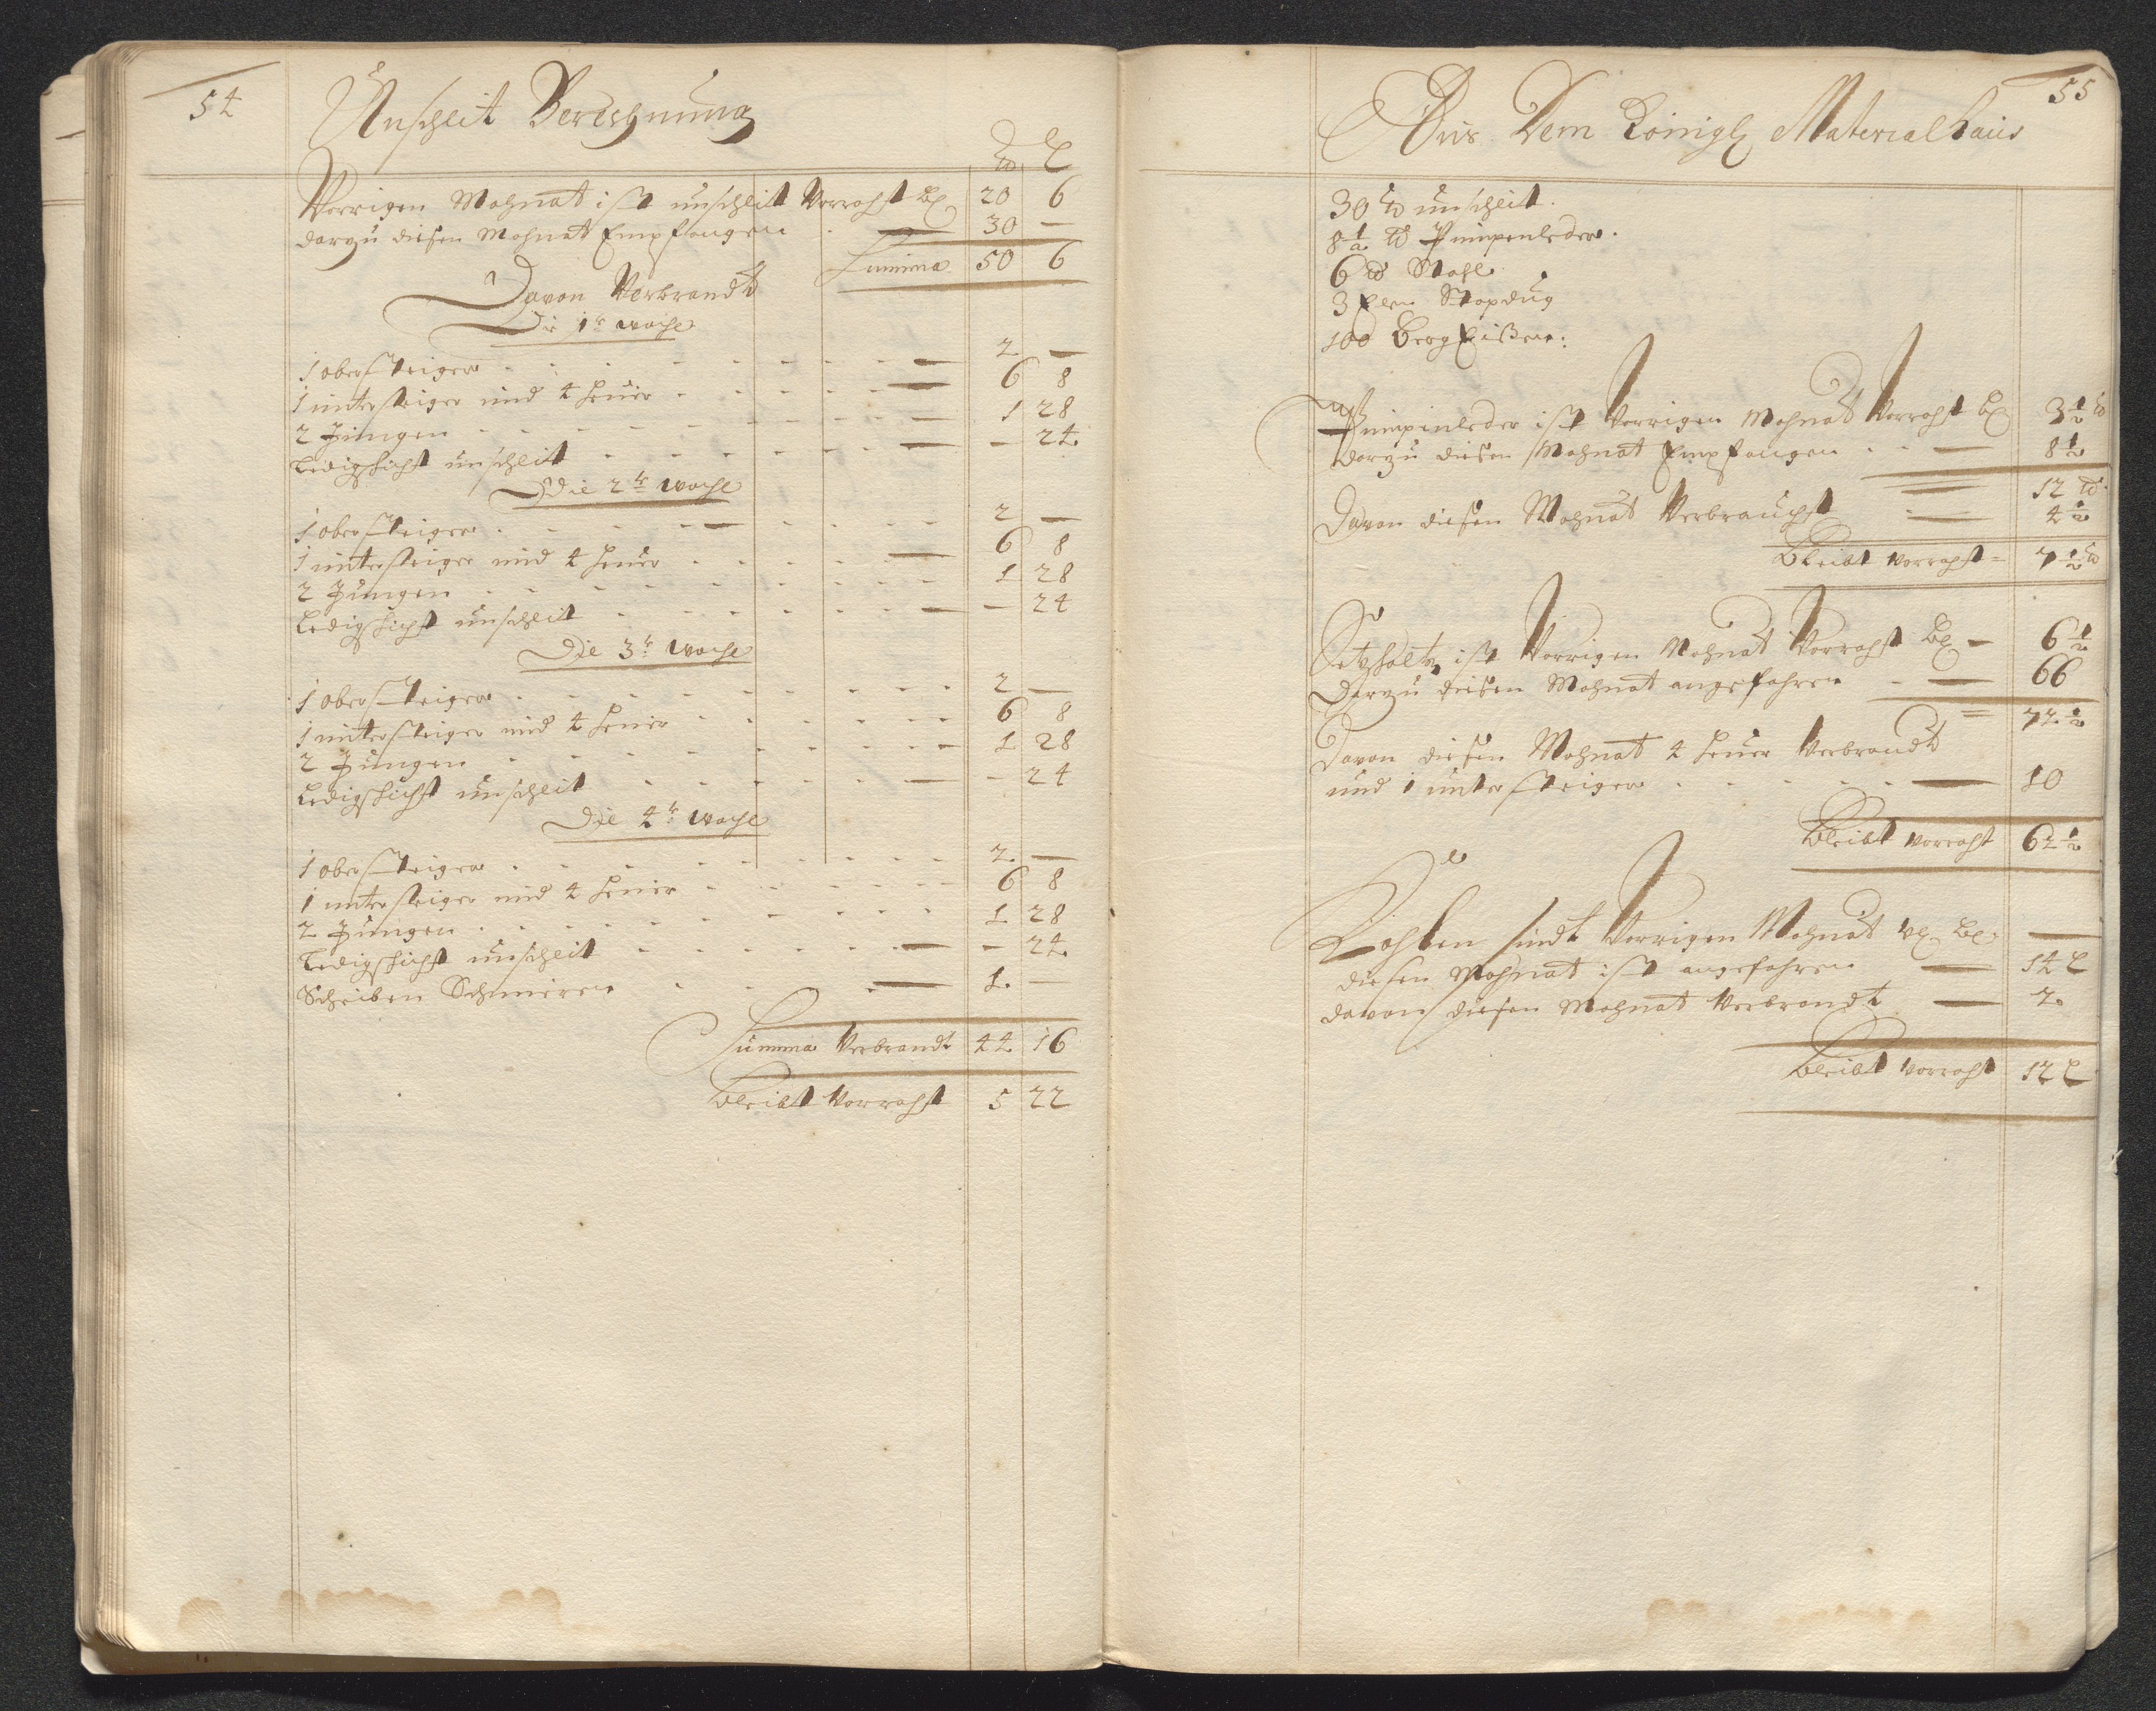 54
Unschleit Berechnung
℔ L
Vorrigen Mohnat ist unschleit Vorraht bl. 20 6
darzu diesen Mohnat Empfangen 30 —
Summa 50 6
Davon Verbrandt
Die 1te woche
1 obersteiger 2 —
1 untersteiger und 4 heuer 6 8
2 Jungen 1 28
Ledigschicht unschleit — 24
Die 2te woche
1 obersteiger 2 —
1 untersteiger und 4 heuer 6 8
2 Jungen 1 28
Ledigschicht unschleit — 24
Die 3te woche
1 obersteiger 2 —
1 untersteiger und 4 heuer 6 8
2 Jungen 1 28
Ledigschicht unschleit — 24
Die 4te woche
1 obersteiger 2 —
1 untersteiger und 4 heuer 6 8
2 Jungen 1 28
Ledigschicht unschleit — 24
Scheiben Schmieren 1 —
Summa Verbrandt 44 16
Bleibt Vorraht 5 22
55
Aus Dem Königl Materialhaus
30 ℔ unschleit.
8½ ℔ Pumpenleder.
6 ℔ Stahl
3 Elen
100 Berg Eißen:
Pumpenleder ist Vorrigen Mohnat Vorraht bl 3½ ℔
darzu diesen Mohnat Empfangen 8½
12 ℔
Davon diesen Mohnat Verbraucht 4½
Bleibt vorraht 7½ ℔
Setzholtz ist Vorrigen Mohnat Vorraht bl — 6½
Darzu diesen Mohnat angefahren — 66
72½
Davon diesen Mohnat 4 heuer Verbrandt
und 1 untersteiger 10
Bleibt vorraht 62½
Kohlen sindt Vorrigen Mohnat bl. —
diesen Mohnat ist angefahren — 14 L
davon diesen Mohnat Verbrandt — 2
Bleibt vorraht 12 L